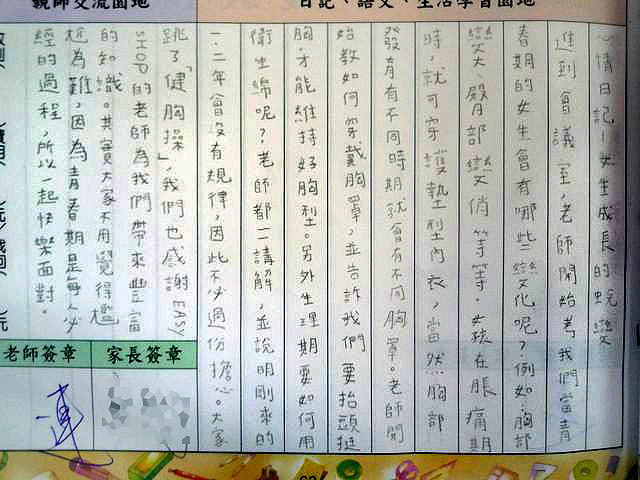 日記、語文、生活學習園地
親師交流園地
心情日記—女生成長的蛻變
進到會議室,老師開始考我們當青
春期的女生會有哪些變化呢?例如:胸部
變大、臀部變俏等等。女孩在脹痛期
時,就可穿護墊型內衣,當然胸部
發育有不同時期就會有不同胸罩。老師開
始教如何穿戴胸罩,並告訴我們要抬頭挺
胸,才能維持好胸型。另外生理期要如何用
衛生綿呢?老師都一一講解,並說明剛來的
一、二年會沒有規律,因此不必過份擔心。大家
跳了「健胸操」,我們也感謝EASY
SHOP的老師為我們帶來豐富
的知識。其實大家不用覺得尷
尬為難,因為青春期是每人必
經的過程,所以一起快樂面對。
家長簽章
老師簽章